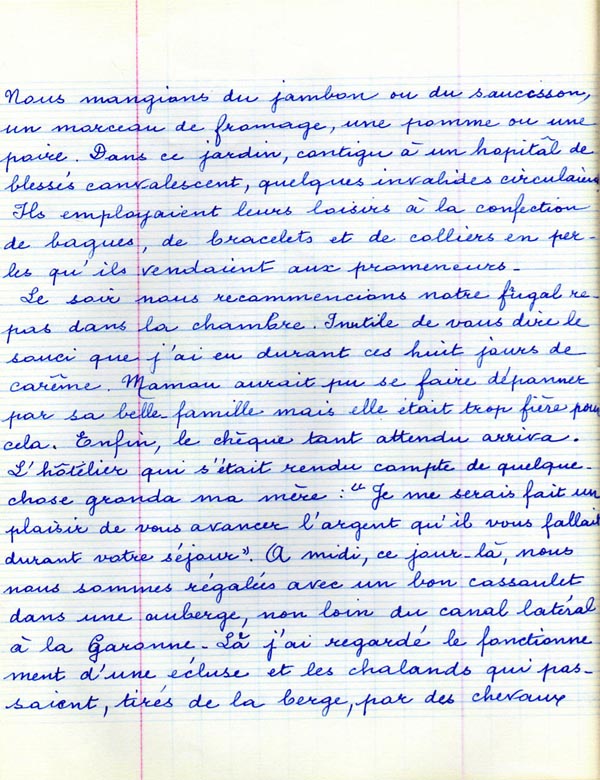 Nous mangions du jambon ou du saucisson,
un morceau de fromage, une pomme ou une
poire. Dans ce jardin, contigu à un hopitâl de
blessés convalescent, quelques invalides circulaien
Ils employaient leurs loisirs à la confection
de bagues, de bracelets et de colliers en per-
les qu'ils vendaient aux promeneurs -
Le soir nous recommencions notre frugal re-
pas dans la chambre. Inutile de vous dire le
souci que j'ai eu durant ces huit jours de
carême. Maman aurait pu se faire dépanner
par sa belle-famille mais elle était trop fière pour
cela. Enfin, le chèque tant attendu arriva.
L'hôtelier qui s'était rendu compte de quelque-
chose gronda ma mère : "Je me serais fait un
plaisir de vous avancer l'argent qu'il vous fallait
durant votre séjour". A midi, ce jour-là, nous
nous sommes régalées avec un bon cassoulet
dans une auberge, non loin du canal latéral
à la Garonne - Là j'ai regardé le fonctionne
ment d'une écluse et les chalands qui pas-
saient, tirés de la berge, par des chevaux